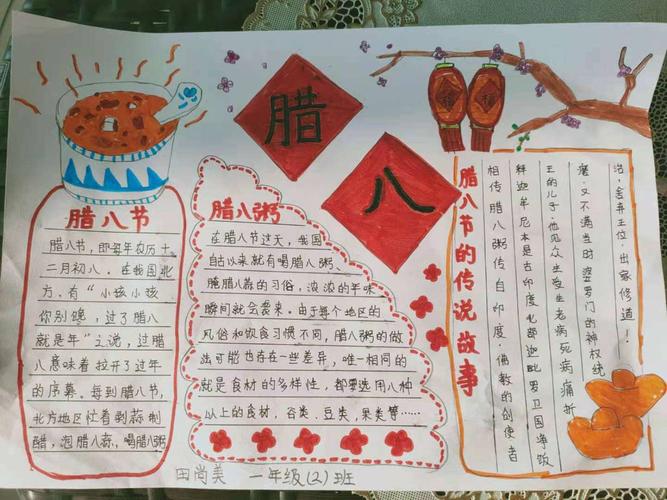 腊
八
腊八节
腊八节，即每年农历十
二月初八。在我国北
方，有“小孩小孩
你别馋，过了腊八
就是年”之说，过腊
八意味着拉开了过年
的序幕。每到腊八节，
北方地区忙着剥蒜制
醋，泡腊八蒜，喝腊八粥
腊八粥
在腊八节这天，我国
自古以来就有喝腊八粥、
腌腊八蒜的习俗，浓浓的年味
瞬间就会袭来。由于每个地区的
风俗和饮食习惯不同，腊八粥的做
法可能也存在一些差异，唯一相同的
就是食材的多样性，都要选用八种
以上的食材，谷类、豆类，果类等……
腊八节的传说故事
相传腊八粥传自印度，佛教的创使者
释迦牟尼本是古印度北部迦毗罗卫国净饭
王的儿子，他见众生受生老病死病痛折
磨，又不满当时婆罗门的神权统
治，舍弃王位，出家修道！
田尚美 一年级(2)班